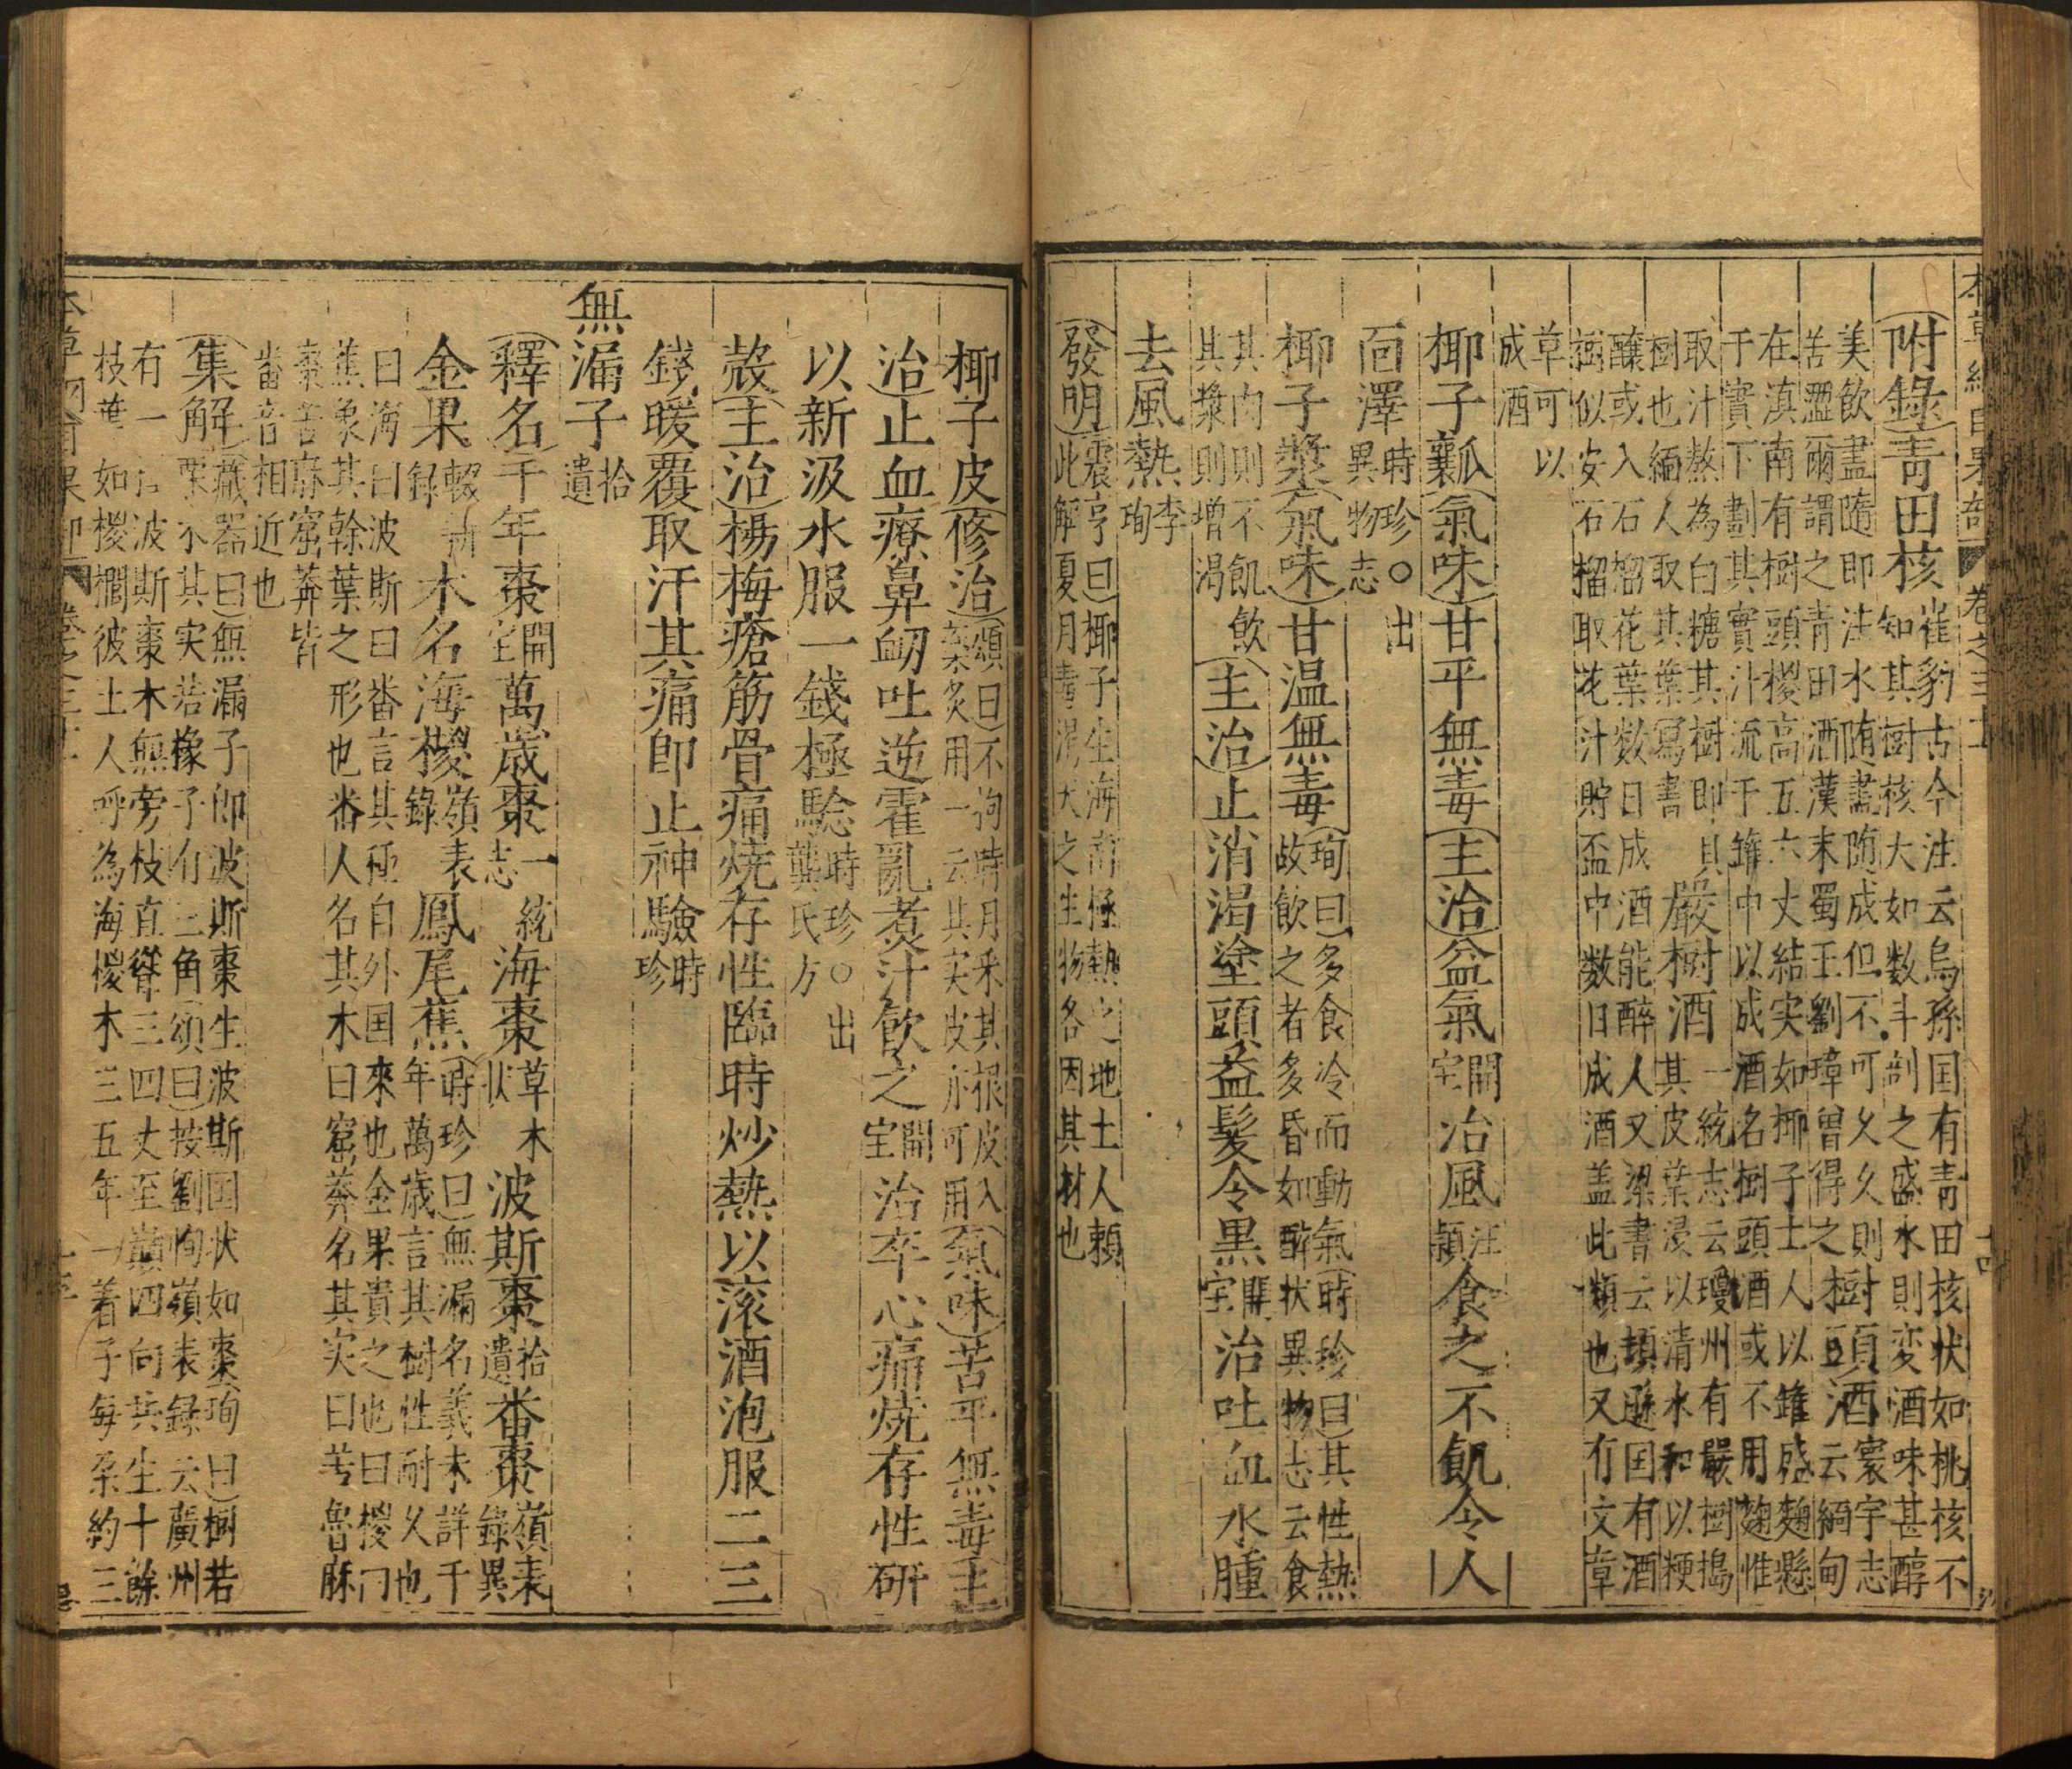 附錄青田核崔豹古今注云烏孫国有青田核状如桃核不
知其樹核大如数斗剖之盛水則変酒味甚醇
美飲盡随即注水随盡随成但不可久久則
苦澀爾謂之青田酒漢末蜀王劉璋曽得之樹頭酒寰宇志
云緬甸
在滇南有樹頭椶高五六丈結实如椰子土人以罐盛麯懸
于實下劃其實汁流于罐中以成酒名樹頭酒或不用麯惟
取汁熬為白糖其樹即貝
樹也緬人取其葉寫書嚴树酒一統志云瓊州有嚴樹搗
其皮葉浸以清水和以粳
釀或入石榴花葉数日成酒能醉人又梁書云頓遜国有酒
樹似安石榴取花汁貯盃中数日成酒盖此類也又有文章
草可以
成酒
椰子瓤氣味甘平無毒主治益氣開
宝治風汪
頴食之不飢令人
面澤時珍○出
異物志
椰子漿氣味甘温無毒珣曰多食冷而動氣時珍曰其性熱
故飲之者多昏如醉状異物志云食
其肉則不飢飲
其漿則增渴主治止消渴塗頭益髪令黒開
宝治吐血水腫
去風熱李
珣
發明震亨曰椰子生海南極熱之地土人賴
此解夏月毒渴天之生物各因其材也
椰子皮修治頌曰不拘時月采其根皮入
藥炙用一云其实皮亦可用氣味苦平無毒主
治止血療鼻衄吐逆霍亂煮汁飲之開
宝治卒心痛燒存性研
以新汲水服一錢極驗時珍○出
龔氏方
殻主治楊梅瘡筋骨痛燒存性臨時炒熱以滚酒泡服二三
錢暖覆取汗其痛即止神驗時
珍
無漏子拾
遺
釋名千年棗開
宝萬歲棗一統
志海棗草木
状波斯棗拾
遺番棗嶺表
錄異
金果輟耕
録木名海椶嶺表
錄鳳尾蕉時珍曰無漏名義未詳千
年萬歲言其樹性耐久也
曰海曰波斯曰番言其種自外国來也金果貴之也曰椶曰
蕉象其幹葉之形也番人名其木曰窟莽名其实曰苦魯麻
棗苦麻窟莽皆
番音相近也
集解藏器曰無漏子即波斯棗生波斯国状如棗珣曰樹若
栗木其实若橡子有三角頌曰按劉恂嶺表録云廣州
有一種波斯棗木無旁枝直聳三四丈至巔四向共生十餘
枝葉如椶櫚彼土人呼為海椶木三五年一着子每朶約三